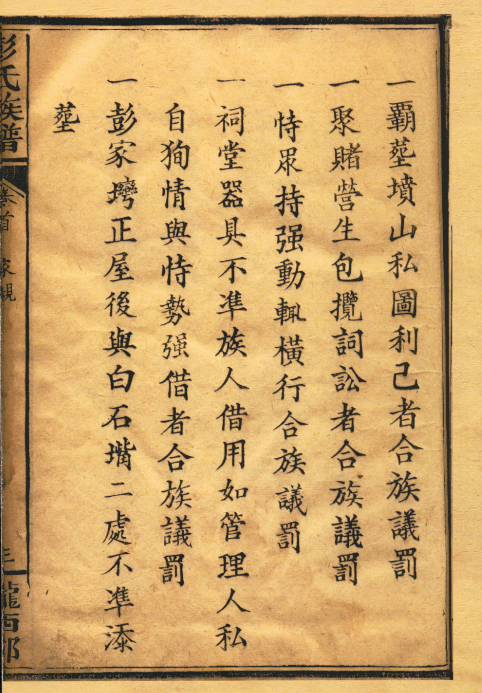 一霸塟墳山私圖利己者合族議罰
一聚賭營生包攬詞訟者合族議罰
一恃眾持强動輙橫行合族議罰
一祠堂器具不准族人借用如管理人私
自狥情與恃勢强借者合族議罰
一彭家塆正屋後與白石嘴二處不准添
塟
彭氏族譜
卷首 家規
三
隴西郡